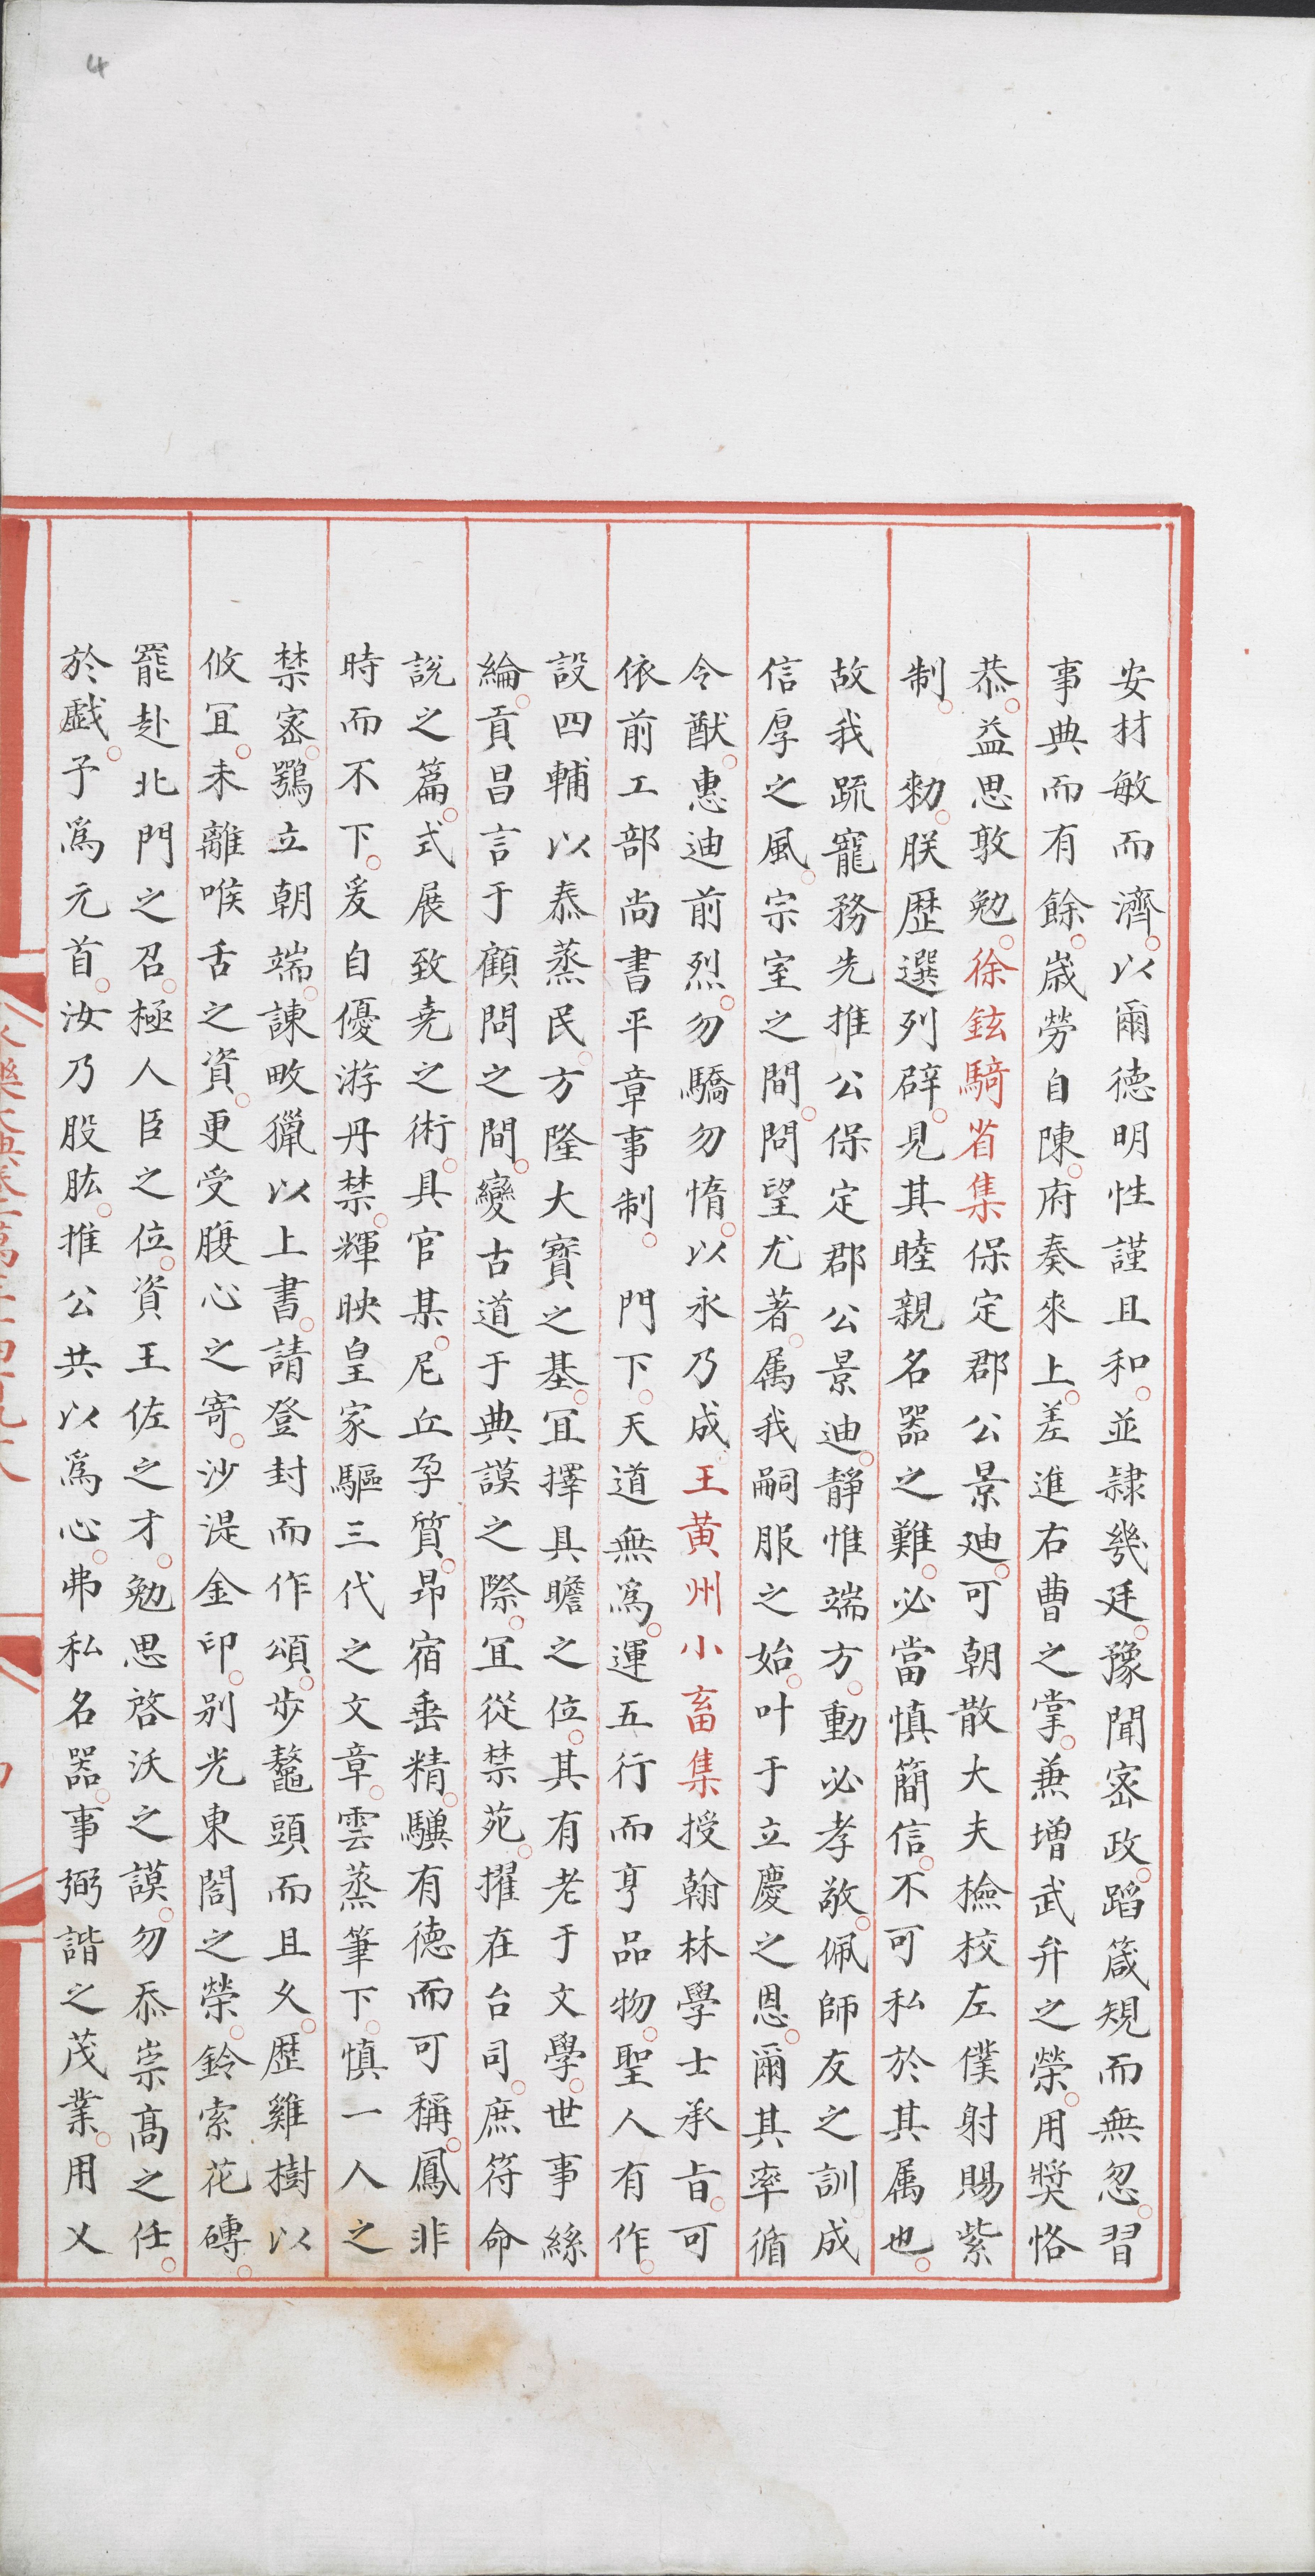 4
安材敏而濟以爾德明性謹且和並隷幾廷豫聞宻政蹈箴規而無忽習
事典而有餘嵗勞自陳府奏來上差進右曹之掌兼增武弁之榮用奬恪
恭益思敦勉徐鉉騎省集保定郡公景廸可朝散大夫檢校左僕射賜紫
制　勑朕歴選列辟見其睦親名器之難必當慎簡信不可私於其属也
故我䟽寵務先推公保定郡公景迪靜惟端方動必孝敬佩師友之訓成
信厚之風宗室之間問望尤著属我嗣服之始叶于立慶之恩爾其率循
令猷惠迪前烈勿驕勿惰以永乃成王黄州小畜集授翰林學士承㫖可
依前工部尚書平章事制　門下天道無為運五行而亨品物聖人有作
設四輔以泰蒸民方隆大寳之基冝擇具瞻之位其有老于文學世事絲
綸貢昌言于顧問之間變古道于典謨之際冝從禁苑擢在台司庶符命
説之篇式展致堯之術具官某尼丘孕質昴宿垂精驥有德而可稱鳳非
時而不下爰自優游丹禁輝映皇家驅三代之文章雲蒸筆下慎一人之
禁宻鶚立朝端諌畋獵以上書請登封而作頌歩鼇頭而且久歴雞樹以
攸冝未離喉舌之資更受腹心之寄沙湜金印别光東閤之榮鈴索花磚
罷赴北門之召極人臣之位資王佐之才勉思啓沃之謨勿忝崇髙之任
於戱予為元首汝乃股肱推公共以為心弗私名器事弼諧之茂業用乂